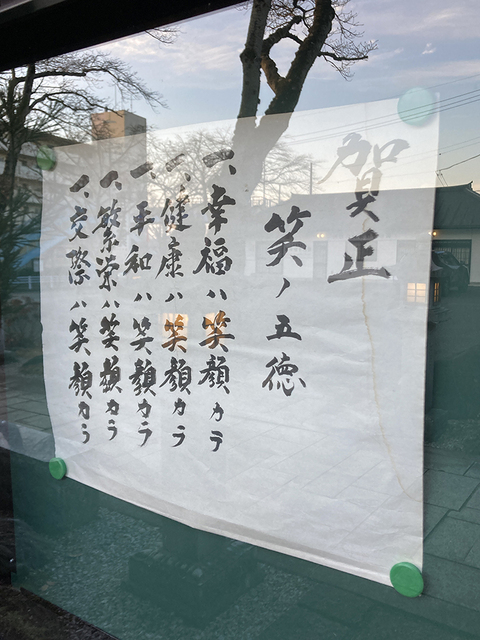 賀正
笑ノ五徳
一、幸福ハ笑顔カラ
一、健康ハ笑顔カラ
一、平和ハ笑顔カラ
一、繁栄ハ笑顔カラ
一、交際ハ笑顔カラ